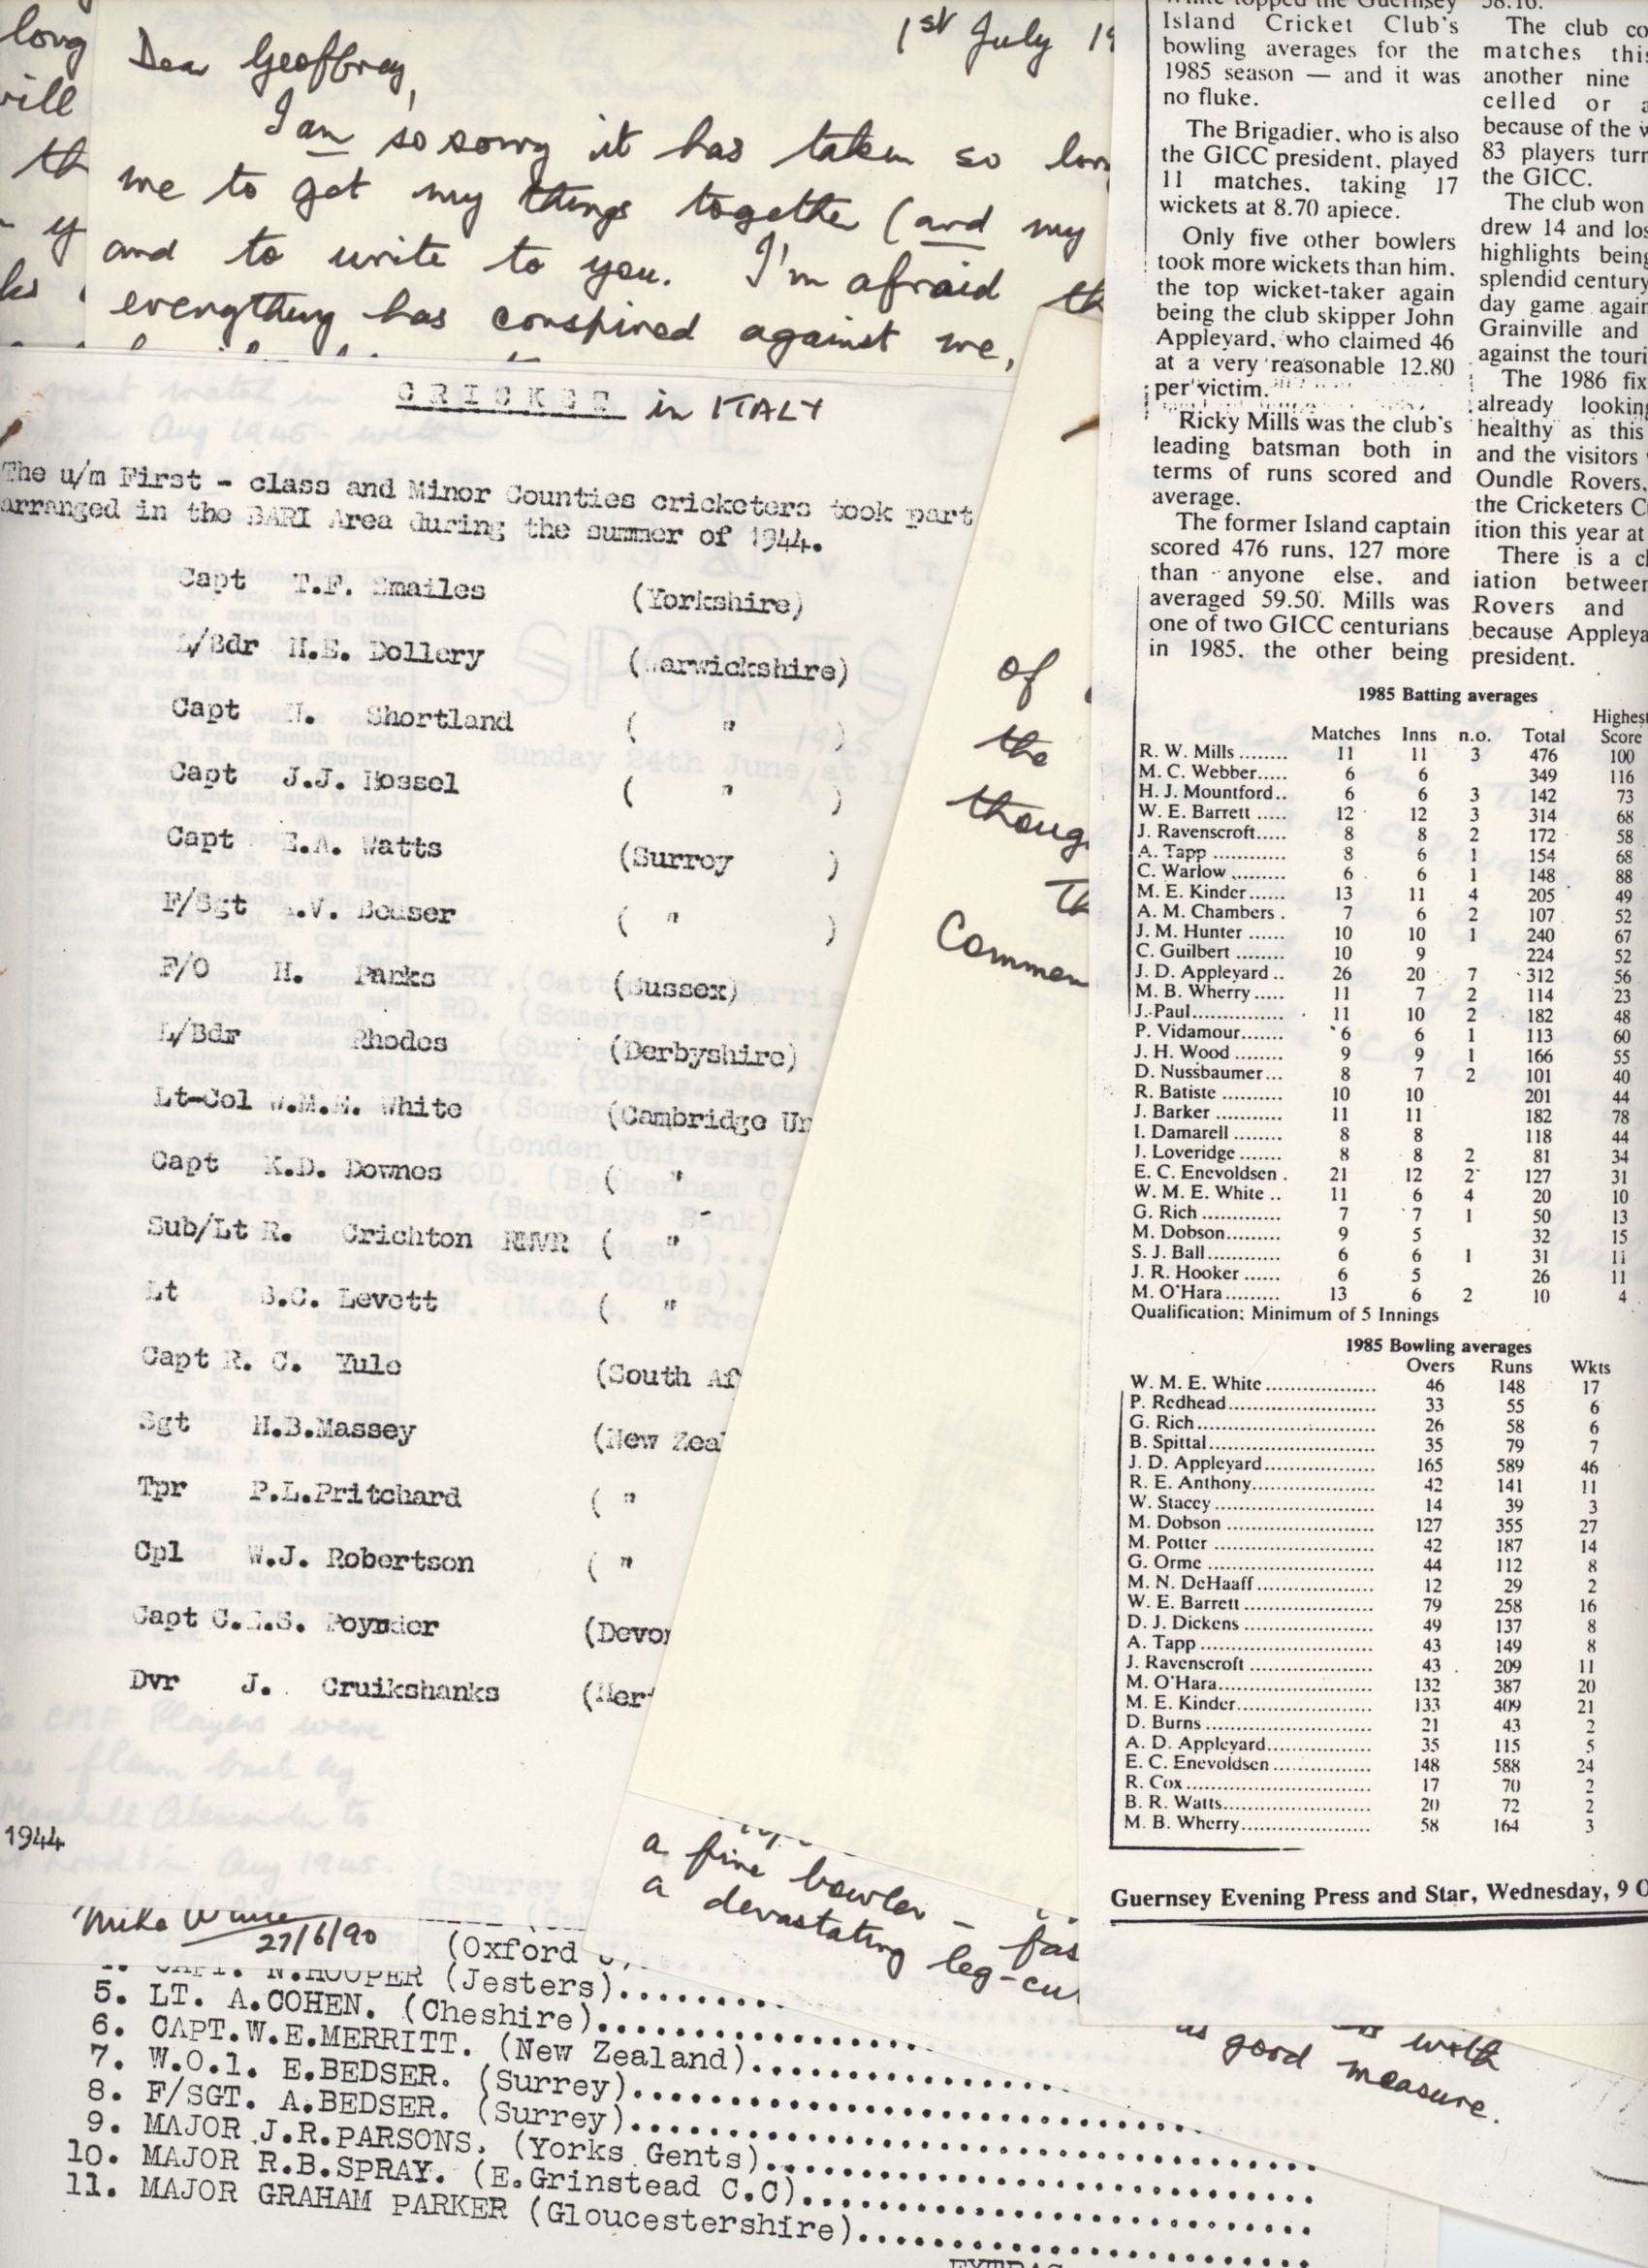 long
will
th
y
Dear Geoffrey,
1st July 19
I am so sorry it has taken so lon
me to get my things together (and my
and to write to you. I'm afraid th
everything has conspired against me,
CRICKET in ITALY
The u/m First - class and Minor Counties cricketers took part
arranged in the BARI Area during the summer of 1944.
Capt T.F. Smailes (Yorkshire)
L/Bdr H.E. Dollery (Warwickshire)
Capt N. Shortland ( " )
Capt J.J. Hossel ( " )
Capt E.A. Watts (Surrey )
F/Sgt A.V. Bedser ( " )
F/O H. Parks (Sussex)
L/Bdr Rhodes (Derbyshire)
Lt-Col W.M.E. White (Cambridge Un
Capt K.D. Downes ( "
Sub/Lt R. Crichton RNVR ( "
Lt S.C. Levett ( "
Capt R. C. Yule (South Af
Sgt H.B.Massey (New Zeal
Tpr P.L.Pritchard ( "
Cpl W.J. Robertson ( "
Capt C.E.S. Poynder (Devon
Dvr J. Cruikshanks (Hert
CMF Players were
flown back by
Marshall Alexander to
1944
in Aug 1945.
Mike White
27/6/90
SPORTS
Sunday 24th June at 1
of
the
thoug
Th
Commen
a fine bowler - fas
a devastating leg-cu
with
as good measure.
(Oxford U
4. CAPT. N.HOOPER (Jesters)..........
5. LT. A.COHEN. (Cheshire)....................
6. CAPT.W.E.MERRITT. (New Zealand)....................
7. W.O.1. E.BEDSER. (Surrey)..............................
8. F/SGT. A.BEDSER. (Surrey)..............................
9. MAJOR J.R.PARSONS. (Yorks Gents)..............................
10. MAJOR R.B.SPRAY. (E.Grinstead C.C)..............................
11. MAJOR GRAHAM PARKER (Gloucestershire)..............................
EXTRAS
White topped the Guernsey
Island Cricket Club's
bowling averages for the
1985 season — and it was
no fluke.
The Brigadier, who is also
the GICC president, played
11 matches, taking 17
wickets at 8.70 apiece.
Only five other bowlers
took more wickets than him,
the top wicket-taker again
being the club skipper John
Appleyard, who claimed 46
at a very reasonable 12.80
per victim.
Ricky Mills was the club's
leading batsman both in
terms of runs scored and
average.
The former Island captain
scored 476 runs, 127 more
than anyone else, and
averaged 59.50. Mills was
one of two GICC centurians
in 1985, the other being
58.16.
The club co
matches this
another nine
celled or a
because of the w
83 players turn
the GICC.
The club won
drew 14 and los
highlights being
splendid century
day game again
Grainville and
against the touri
The 1986 fix
already looking
healthy as this
and the visitors
Oundle Rovers,
the Cricketers C
ition this year at
There is a cl
iation between
Rovers and
because Appleya
president.
1985 Batting averages
Highest
Matches Inns n.o. Total Score
R. W. Mills ........ 11 11 3 476 100
M. C. Webber..... 6 6 349 116
H. J. Mountford.. 6 6 3 142 73
W. E. Barrett ...... 12 12 3 314 68
J. Ravenscroft..... 8 8 2 172 58
A. Tapp ............ 8 6 1 154 68
C. Warlow ......... 6 6 1 148 88
M. E. Kinder....... 13 11 4 205 49
A. M. Chambers . 7 6 2 107 52
J. M. Hunter ...... 10 10 1 240 67
C. Guilbert ......... 10 9 224 52
J. D. Appleyard .. 26 20 7 312 56
M. B. Wherry ..... 11 7 2 114 23
J. Paul............... 11 10 2 182 48
P. Vidamour....... 6 6 1 113 60
J. H. Wood ........ 9 9 1 166 55
D. Nussbaumer... 8 7 2 101 40
R. Batiste .......... 10 10 201 44
J. Barker ........... 11 11 182 78
I. Damarell ........ 8 8 118 44
J. Loveridge ....... 8 8 2 81 34
E. C. Enevoldsen . 21 12 2 127 31
W. M. E. White .. 11 6 4 20 10
G. Rich ............. 7 7 1 50 13
M. Dobson......... 9 5 32 15
S. J. Ball............ 6 6 1 31 11
J. R. Hooker ...... 6 5 26 11
M. O'Hara ......... 13 6 2 10 4
Qualification: Minimum of 5 Innings
1985 Bowling averages
Overs Runs Wkts
W. M. E. White .................... 46 148 17
P. Redhead.......................... 33 55 6
G. Rich............................... 26 58 6
B. Spittal............................. 35 79 7
J. D. Appleyard.................... 165 589 46
R. E. Anthony...................... 42 141 11
W. Stacey ........................... 14 39 3
M. Dobson .......................... 127 355 27
M. Potter ............................ 42 187 14
G. Orme ............................. 44 112 8
M. N. DeHaaff ..................... 12 29 2
W. E. Barrett ....................... 79 258 16
D. J. Dickens ....................... 49 137 8
A. Tapp .............................. 43 149 8
J. Ravenscroft ...................... 43 209 11
M. O'Hara........................... 132 387 20
M. E. Kinder........................ 133 409 21
D. Burns ............................. 21 43 2
A. D. Appleyard................... 35 115 5
E. C. Enevoldsen .................. 148 588 24
R. Cox ................................ 17 70 2
B. R. Watts.......................... 20 72 2
M. B. Wherry....................... 58 164 3
Guernsey Evening Press and Star, Wednesday, 9 O